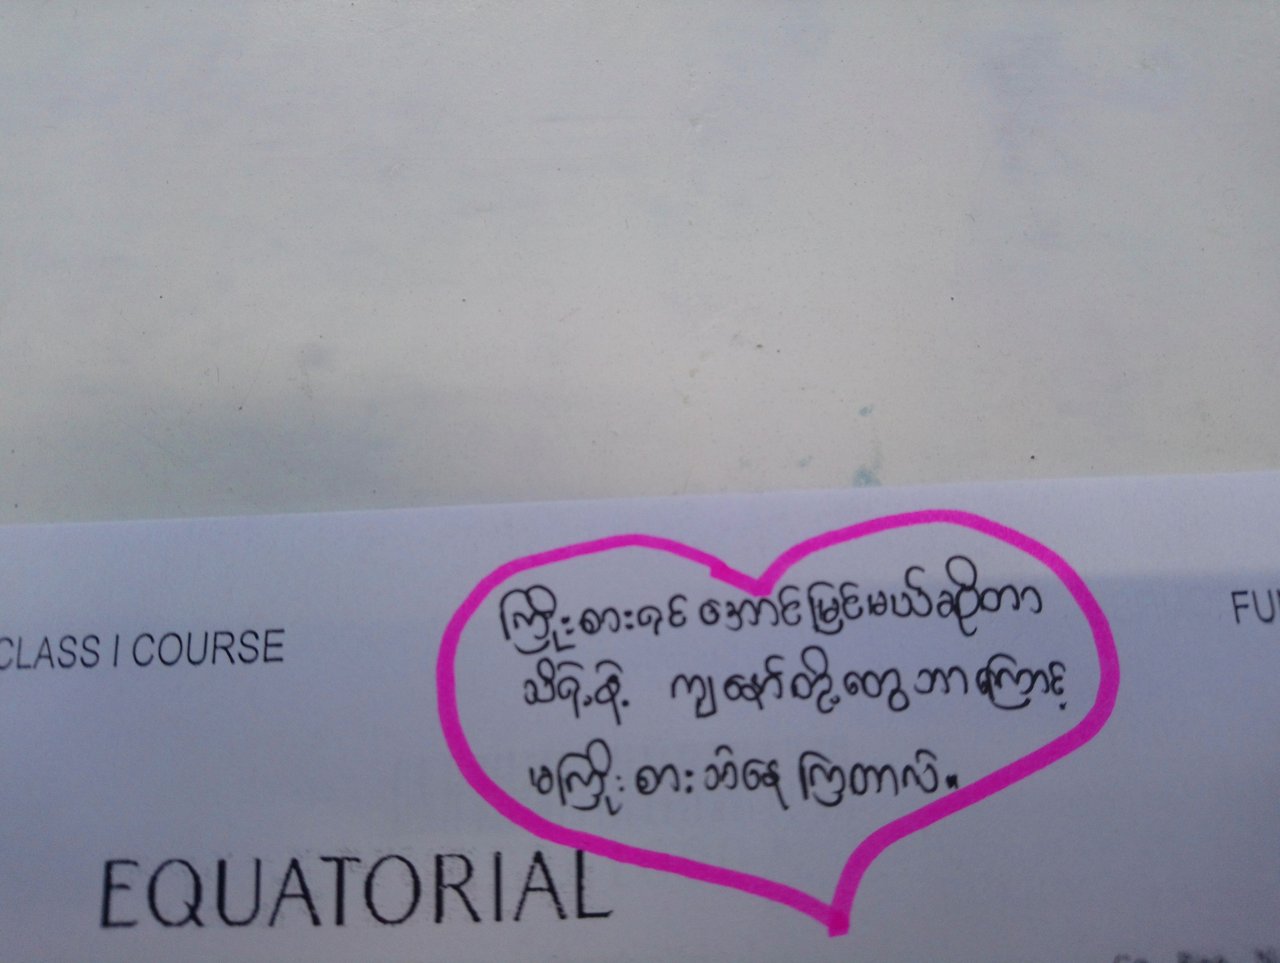 ကြိုးစားရင် အောင်မြင်မယ်ဆိုတာ
CLASS I COURSE
သိရဲ့နဲ့ ကျနော်တို့တွေ ဘာကြောင့်
မကြိုးစားဘဲနေကြတာလဲ။
EQUATORIAL